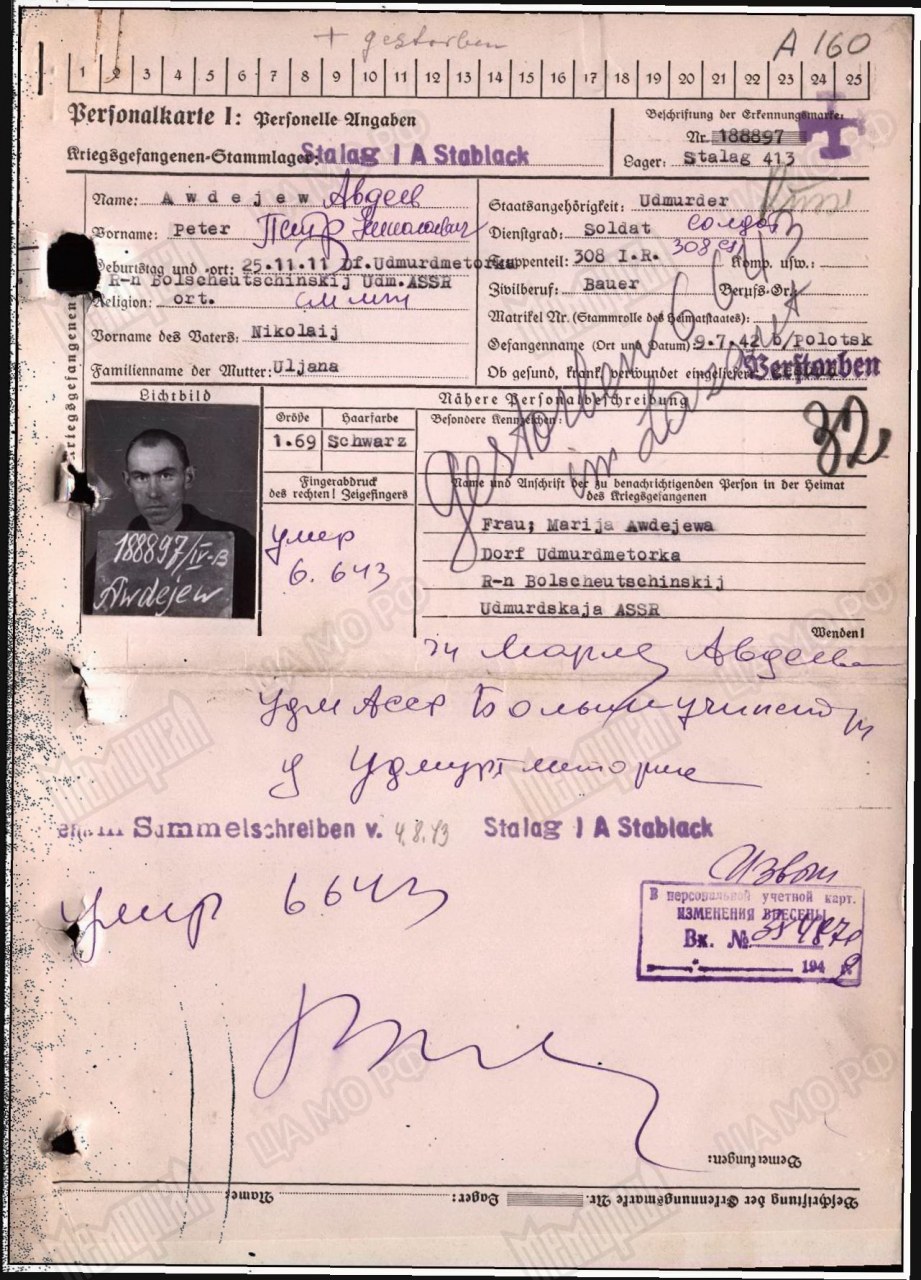 + gestorben
A 160
1 2 3 4 5 6 7 8 9 10 11 12 13 14 15 16 17 18 19 20 21 22 23 24 25
Personalkarte I: Personelle Angaben
Beschriftung der Erkennungsmarke
Nr. 188897
Kriegsgefangenen-Stammlager: Stalag I A Stablack
Lager: Stalag 413
Name: Awdejew Авдеев
Staatsangehörigkeit: Udmurder
Vorname: Peter Петр Николаевич
Dienstgrad: Soldat солдат
Geburtstag und -ort: 25.11.11 Df.Udmurdmetorka
Truppenteil: 308 I.R. 308 сп Komp. usw.:
R-n Bolscheutschinskij Udm.ASSR
Religion: ort.
Zivilberuf: Bauer Berufs-Gr.
Matrikel Nr. (Stammrolle des Heimatstaates):
Vorname des Vaters: Nikolaij
Gefangenname (Ort und Datum): 9.7.42 b/Polotsk
Familienname der Mutter: Uljana
Ob gesund, krank, verwundet eingeliefert:
Verstorben
Kriegsgefangenen
gestorben 6 6 43
im Lazarett
32
Lichtbild
Nähere Personalbeschreibung
Größe Haarfarbe Besondere Kennzeichen:
1.69 Schwarz
Fingerabdruck
des rechten! Zeigefingers
Name und Anschrift der zu benachrichtigenden Person in der Heimat
des Kriegsgefangenen
188897/IV-B
Awdejew
умер
6.6 43
Frau; Marija Awdejewa
Dorf Udmurdmetorka
R-n Bolscheutschinskij
Udmurdskaja ASSR
Wenden!
Авдеева
Удм Асср
Sammelschreiben v. 4.8.43 Stalag I A Stablack
умер 6 6 43
В персональной учетной карт.
ИЗМЕНЕНИЯ ВНЕСЕНЫ
Вх. №
194
Bemerkungen:
Beschriftung der Erkennungsmarke Nr. Lager: Name:
ЦА МО РФ
Мемориал